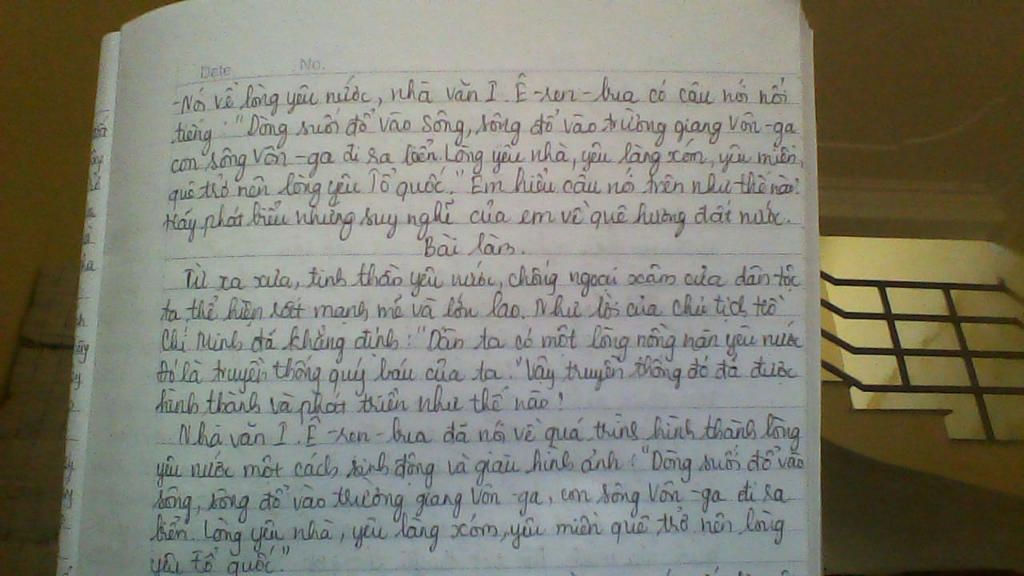 Date No.
-Nói về lòng yêu nước, nhà văn I. Ê-ren-bua có câu nói nổi
tiếng: "Dòng suối đổ vào sông, sông đổ vào trường giang Vôn-ga
con sông Vôn-ga đi ra biển. Lòng yêu nhà, yêu làng xóm, yêu miền
quê trở nên lòng yêu Tổ quốc." Em hiểu câu nói trên như thế nào?
Hãy phát biểu những suy nghĩ của em về quê hương đất nước.
Bài làm.
Từ xa xưa, tinh thần yêu nước, chống ngoại xâm của dân tộc
ta thể hiện rất mạnh mẽ và lớn lao. Như lời của chủ tịch Hồ
Chí Minh đã khẳng định: "Dân ta có một lòng nồng nàn yêu nước
Đó là truyền thống quý báu của ta." Vậy truyền thống đó đã được
hình thành và phát triển như thế nào!
Nhà văn I. Ê-ren-bua đã nói về quá trình hình thành lòng
yêu nước một cách sinh động và giàu hình ảnh: "Dòng suối đổ vào
sông, sông đổ vào trường giang Vôn-ga, con sông Vôn-ga đi ra
biển. Lòng yêu nhà, yêu làng xóm, yêu miền quê trở nên lòng
yêu Tổ quốc."